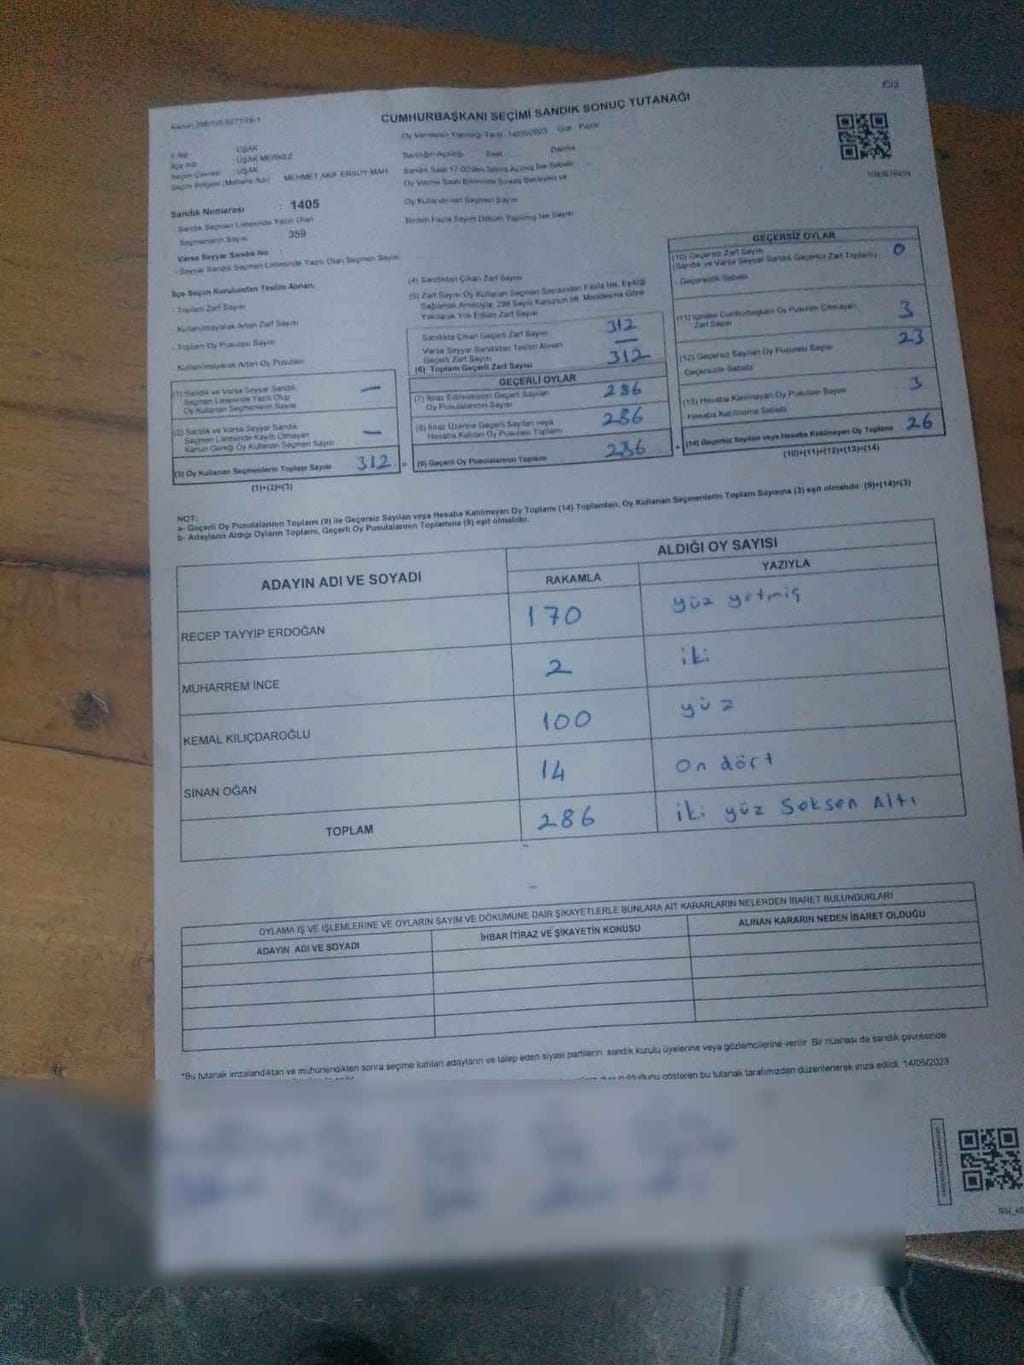 C/2
CUMHURBAŞKANI SEÇİMİ SANDIK SONUÇ TUTANAĞI
Oy Vermenin Yapıldığı Tarih : 14/05/2023 Gün : Pazar
İl Adı : UŞAK
İlçe Adı : UŞAK MERKEZ
Seçim Çevresi : UŞAK
Seçim Bölgesi (Mahalle Adı) : MEHMET AKİF ERSOY MAH
Sandığın Açıldığı Saat Dakika
Sandık Numarası : 1405
- Sandık Seçmen Listesinde Yazılı Olan
Seçmenlerin Sayısı : 359
Varsa Seyyar Sandık No
- Seyyar Sandık Seçmen Listesinde Yazılı Olan Seçmen Sayısı
İlçe Seçim Kurulundan Teslim Alınan;
- Toplam Zarf Sayısı
Kullanılmayarak Artan Zarf Sayısı
- Toplam Oy Pusulası Sayısı
Kullanılmayarak Artan Oy Pusulası
(1) Sandık ve Varsa Seyyar Sandık
Seçmen Listesinde Yazılı Olup
Oy Kullanan Seçmenlerin Sayısı —
(2) Sandık ve Varsa Seyyar Sandık
Seçmen Listesinde Kayıtlı Olmayan
Kanun Gereği Oy Kullanan Seçmen Sayısı —
(3) Oy Kullanan Seçmenlerin Toplam Sayısı 312
(1)+(2)=(3)
Oy Kullandırılan Seçmen Sayısı
Birden Fazla Sayım Döküm Yapılmış İse Sayısı
(4) Sandıktan Çıkan Zarf Sayısı
(5) Zarf Sayısı Oy Kullanan Seçmen Sayısından Fazla İse, Eşitliği
Sağlamak Amacıyla, 298 Sayılı Kanunun 98. Maddesine Göre
Yakılarak Yok Edilen Zarf Sayısı
Sandıkta Çıkan Geçerli Zarf Sayısı 312
Varsa Seyyar Sandıktan Teslim Alınan
Geçerli Zarf Sayısı —
(6) Toplam Geçerli Zarf Sayısı 312
GEÇERLİ OYLAR
(7) İtiraz Edilmeksizin Geçerli Sayılan
Oy Pusulalarının Sayısı 286
(8) İtiraz Üzerine Geçerli Sayılan veya
Hesaba Katılan Oy Pusulası Toplamı 286
(9) Geçerli Oy Pusulalarının Toplamı 286
GEÇERSİZ OYLAR
(10) Geçersiz Zarf Sayısı
(Sandık ve Varsa Seyyar Sandık Geçersiz Zarf Toplamı) 0
Geçersizlik Sebebi
(11) İçinden Cumhurbaşkanı Oy Pusulası Çıkmayan
Zarf Sayısı 3
(12) Geçersiz Sayılan Oy Pusulası Sayısı 23
Geçersizlik Sebebi
(13) Hesaba Katılmayan Oy Pusulası Sayısı 3
Hesaba Katılmama Sebebi
(14) Geçersiz Sayılan veya Hesaba Katılmayan Oy Toplamı 26
(10)+(11)+(12)+(13)=(14)
NOT:
a- Geçerli Oy Pusulalarının Toplamı (9) ile Geçersiz Sayılan veya Hesaba Katılmayan Oy Toplamı (14) Toplamları, Oy Kullanan Seçmenlerin Toplam Sayısına (3) eşit olmalıdır. (9)+(14)=(3)
b- Adayların Aldığı Oyların Toplamı, Geçerli Oy Pusulalarının Toplamına (9) eşit olmalıdır.
ADAYIN ADI VE SOYADI
ALDIĞI OY SAYISI
RAKAMLA YAZIYLA
RECEP TAYYİP ERDOĞAN 170 yüz yetmiş
MUHARREM İNCE 2 iki
KEMAL KILIÇDAROĞLU 100 yüz
SİNAN OĞAN 14 On dört
TOPLAM 286 iki yüz Seksen Altı
OYLAMA İŞ VE İŞLEMLERİNE VE OYLARIN SAYIM VE DÖKÜMÜNE DAİR ŞİKAYETLERLE BUNLARA AİT KARARLARIN NELERDEN İBARET BULUNDUKLARI
ADAYIN ADI VE SOYADI İHBAR İTİRAZ VE ŞİKAYETİN KONUSU ALINAN KARARIN NEDEN İBARET OLDUĞU
*Bu tutanak imzalandıktan ve mühürlendikten sonra seçime katılan adayların ve talep eden siyasi partilerin sandık kurulu üyelerine veya gözlemcilerine verilir. Bir nüshası da sandık çevresinde
gösteren bu tutanak tarafımızdan düzenlenerek imza edildi. 14/05/2023